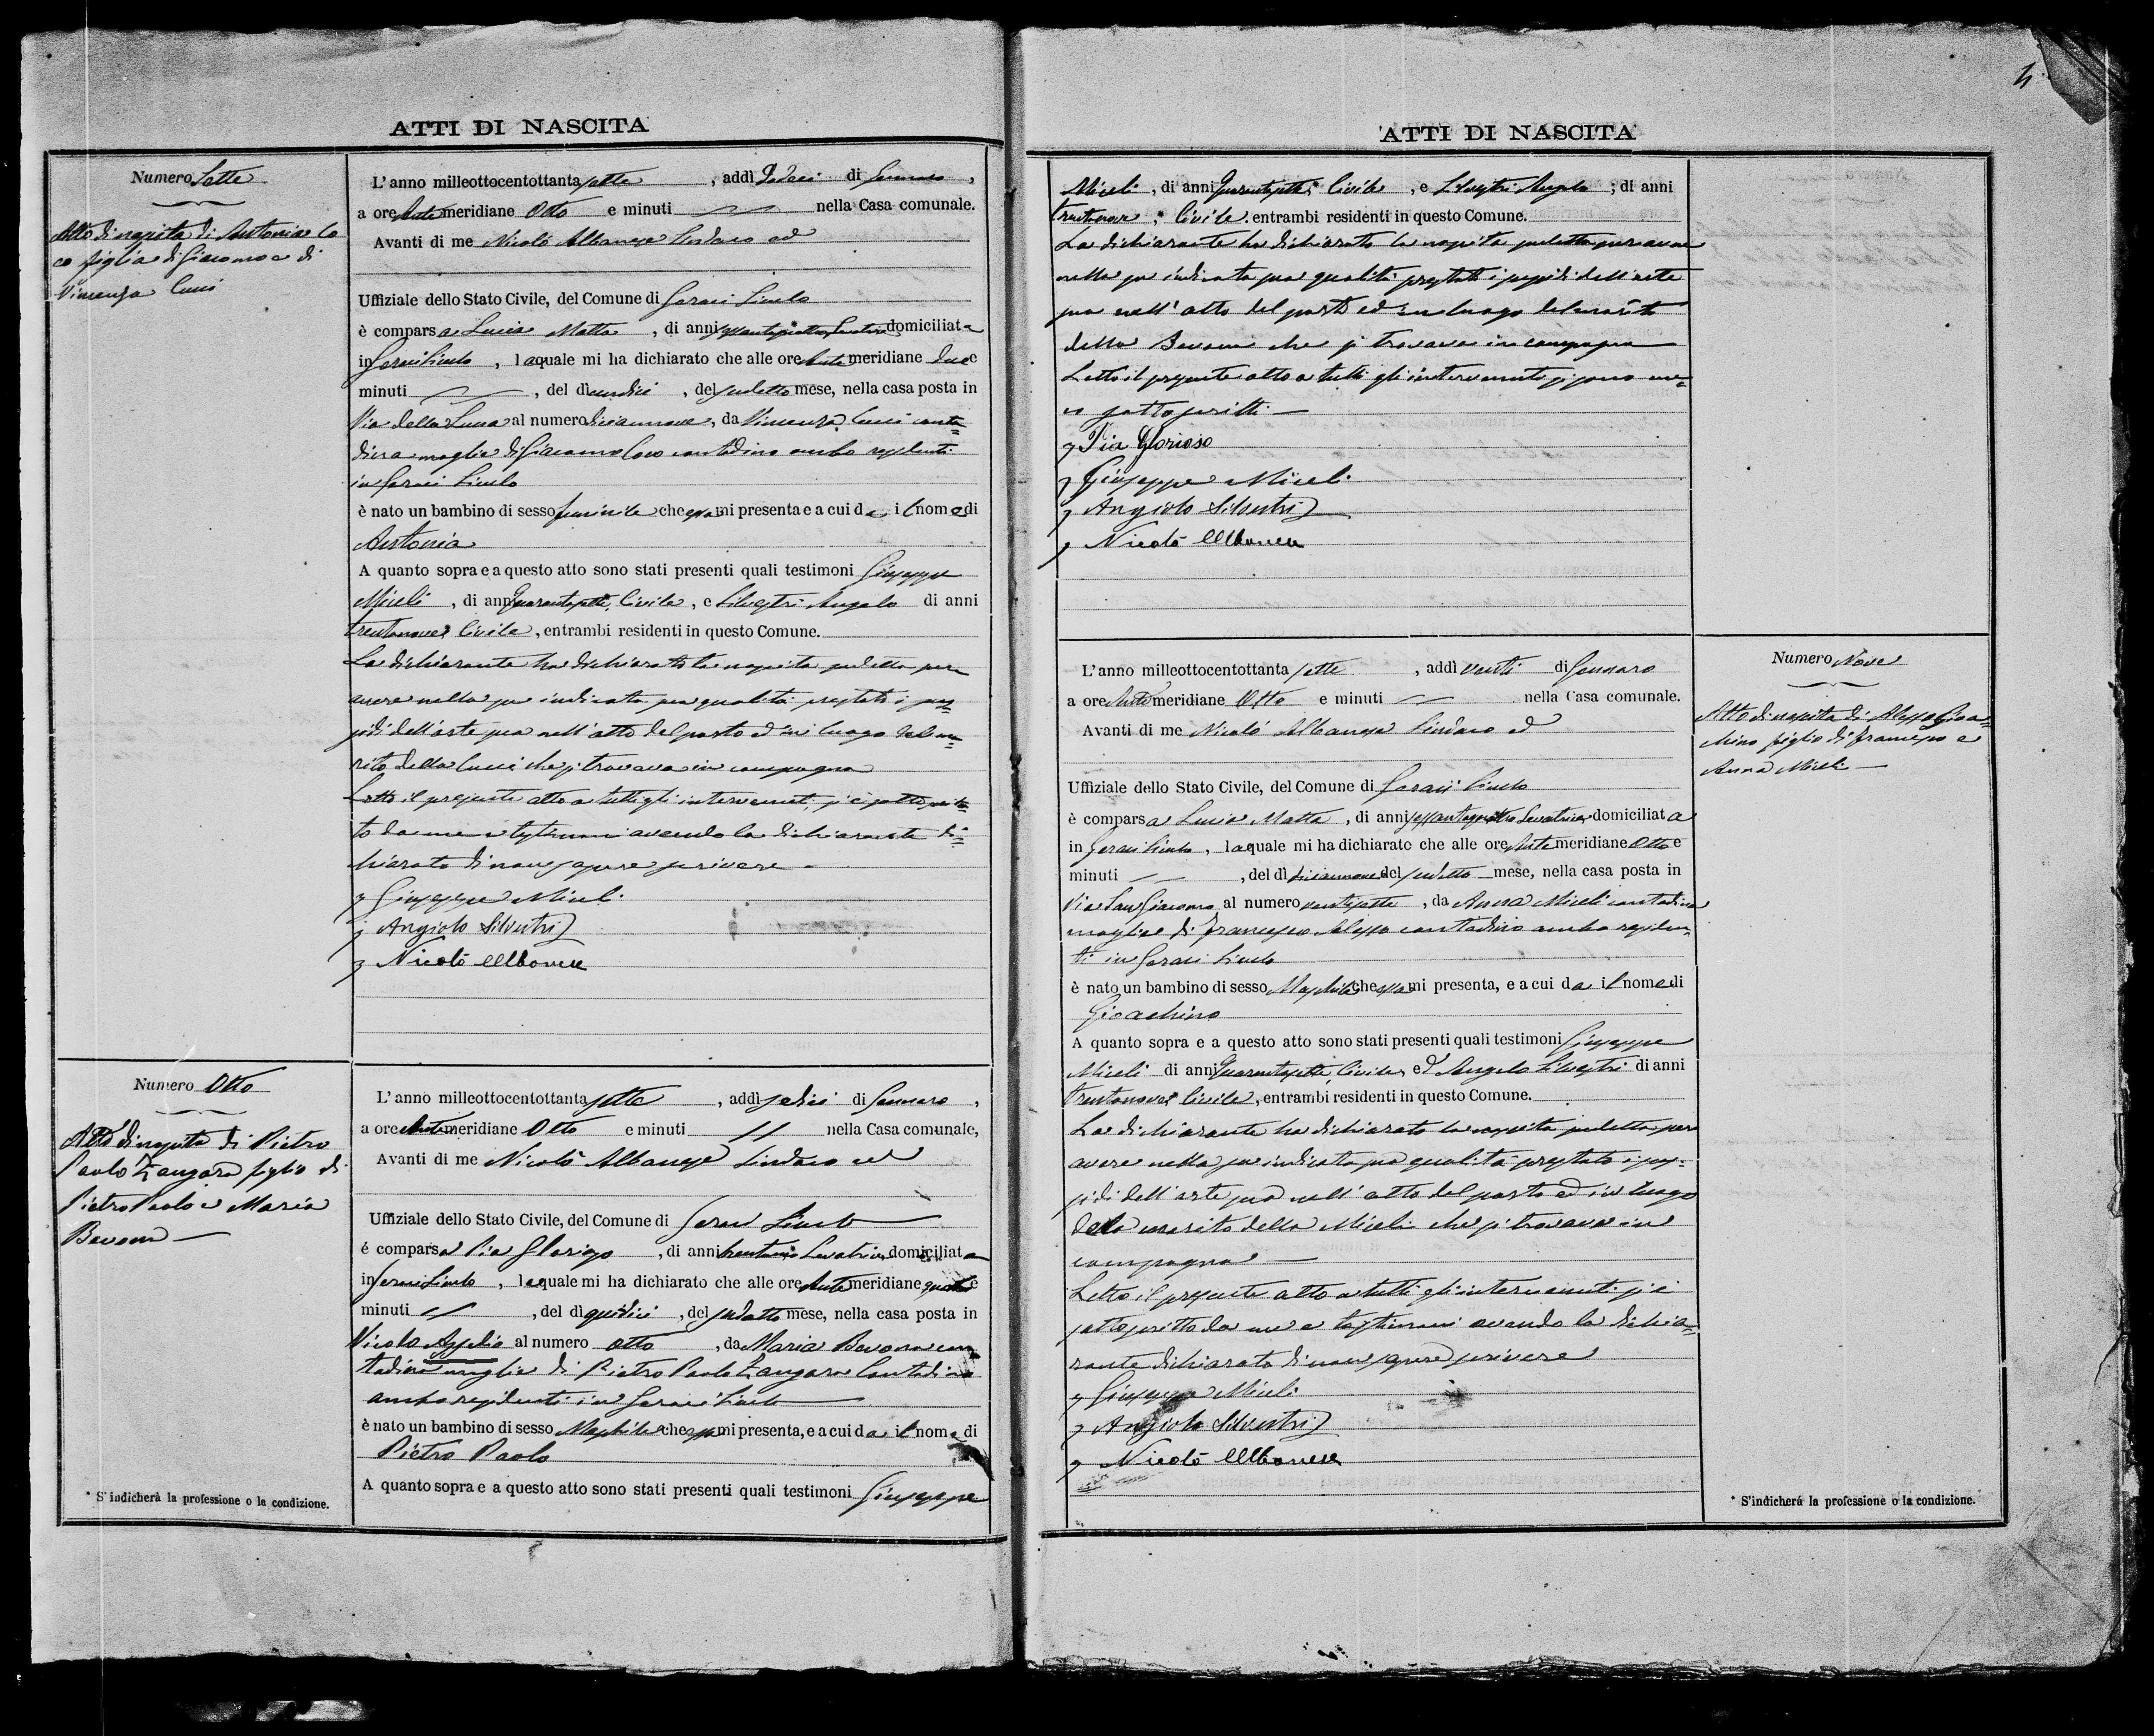 4
ATTI DI NASCITA
Numero Sette
Atto di nascita di Antonia Lo
co figlia di Giacomo e di
Vincenza Cucci
L'anno milleottocentottanta sette, addì Dodeci di Gennaro,
a ore Ante meridiane Otto e minuti — nella Casa comunale.
Avanti di me Nicolò Albanese Sindaco ed
Uffiziale dello Stato Civile, del Comune di Geraci Siculo
è comparsa Lucia Matta, di anni sessantaquattro, Levatrice domiciliata
in Geraci Siculo, la quale mi ha dichiarato che alle ore Ante meridiane due e
minuti —, del dì undici, del sudetto mese, nella casa posta in
Via della Luna al numero diciannove, da Vincenza Cucci conta=
dina moglie di Giacomo Loco contadino ambo residenti
in Geraci Siculo
è nato un bambino di sesso feminile che essa mi presenta e a cui da il nome di
Antonia
A quanto sopra e a questo atto sono stati presenti quali testimoni Giuseppe
Miceli, di anni Quarantasette, Civile, e Silvestri Angelo di anni
trentanove, Civile, entrambi residenti in questo Comune.
La dichiarante ha dichiarato la nascita sudetta per
avere nella su indicata sua qualità prestati i sus=
sidi dell'arte sua nell'atto del parto ed in luogo del ma=
rito della Cucci che si trovava in campagna
Letto il presente atto a tutti gli intervenuti, si è sottoscrit=
to da me e testimoni avendo la dichiarante di=
chiarato di non sapere scrivere
Giuseppe Miceli
Angiolo Silvestri
Nicolò Albanese
Numero Otto
Atto di nascita di Pietro
Paolo Zangara figlio di
Pietro Paolo e Maria
Bavona —
L'anno milleottocentottanta sette, addì sedici di Gennaro,
a ore Ante meridiane Otto e minuti — nella Casa comunale,
Avanti di me Nicolò Albanese Sindaco ed
Uffiziale dello Stato Civile, del Comune di Geraci Siculo
é comparsa Pia Glorioso, di anni Levatrice, domiciliata
in Geraci Siculo, la quale mi ha dichiarato che alle ore Ante meridiane quattro e
minuti —, del dì quindici, del sudetto mese, nella casa posta in
Vicolo al numero otto, da Maria Bavona con
tadina moglie di Pietro Paolo Zangara Contadino
ambo residenti in Geraci Siculo
è nato un bambino di sesso Maschile che essa mi presenta, e a cui da il nome di
Pietro Paolo
A quanto sopra e a questo atto sono stati presenti quali testimoni Giuseppe
* S'indicherà la professione o la condizione.
ATTI DI NASCITA
Miceli, di anni Quarantasette, Civile, e Silvestri Angelo; di anni
trentanove; Civile, entrambi residenti in questo Comune.
La dichiarante ha dichiarato la nascita sudetta per avere
nella su indicata sua qualità prestati i sussidi dell'arte
sua nell'atto del parto ed in luogo del marito
della Bavona che si trovava in campagna
Letto il presente atto a tutti gli intervenuti si sono me=
co sottoscritti —
Pia Glorioso
Giuseppe Miceli
Angiolo Silvestri
Nicolò Albanese
Numero Nove
Atto di nascita di Alessa Gioa=
chino figlio di Francesco e
Anna Miceli —
L'anno milleottocentottanta sette, addì venti di Gennaro
a ore Ante meridiane Otto e minuti — nella Casa comunale.
Avanti di me Nicolò Albanese Sindaco ed
Uffiziale dello Stato Civile, del Comune di Geraci Siculo
è comparsa Lucia Matta, di anni sessantaquattro Levatrice, domiciliata
in Geraci Siculo, la quale mi ha dichiarato che alle ore Ante meridiane Otto e
minuti —, del dì diciannove del sudetto mese, nella casa posta in
Via San Giacomo al numero ventisette, da Anna Miceli contadina
moglie di Francesco Alessa contadino ambo residen=
ti in Geraci Siculo
è nato un bambino di sesso Maschile che essa mi presenta, e a cui da il nome di
Gioachino
A quanto sopra e a questo atto sono stati presenti quali testimoni Giuseppe
Miceli di anni Quarantasette, Civile, ed Angelo Silvestri di anni
trentanove, Civile, entrambi residenti in questo Comune.
La dichiarante ha dichiarato la nascita sudetta per
avere nella su indicata sua qualità prestato i sus=
sidi dell'arte sua nell'atto del parto ed in luogo
del marito della Miceli che si trovava in
campagna —
Letto il presente atto a tutti gli intervenuti si è
sottoscritto da me e testimoni avendo la dichia=
rante dichiarato di non sapere scrivere
Giuseppe Miceli
Angiolo Silvestri
Nicolò Albanese
* S'indicherá la professione o la condizione.